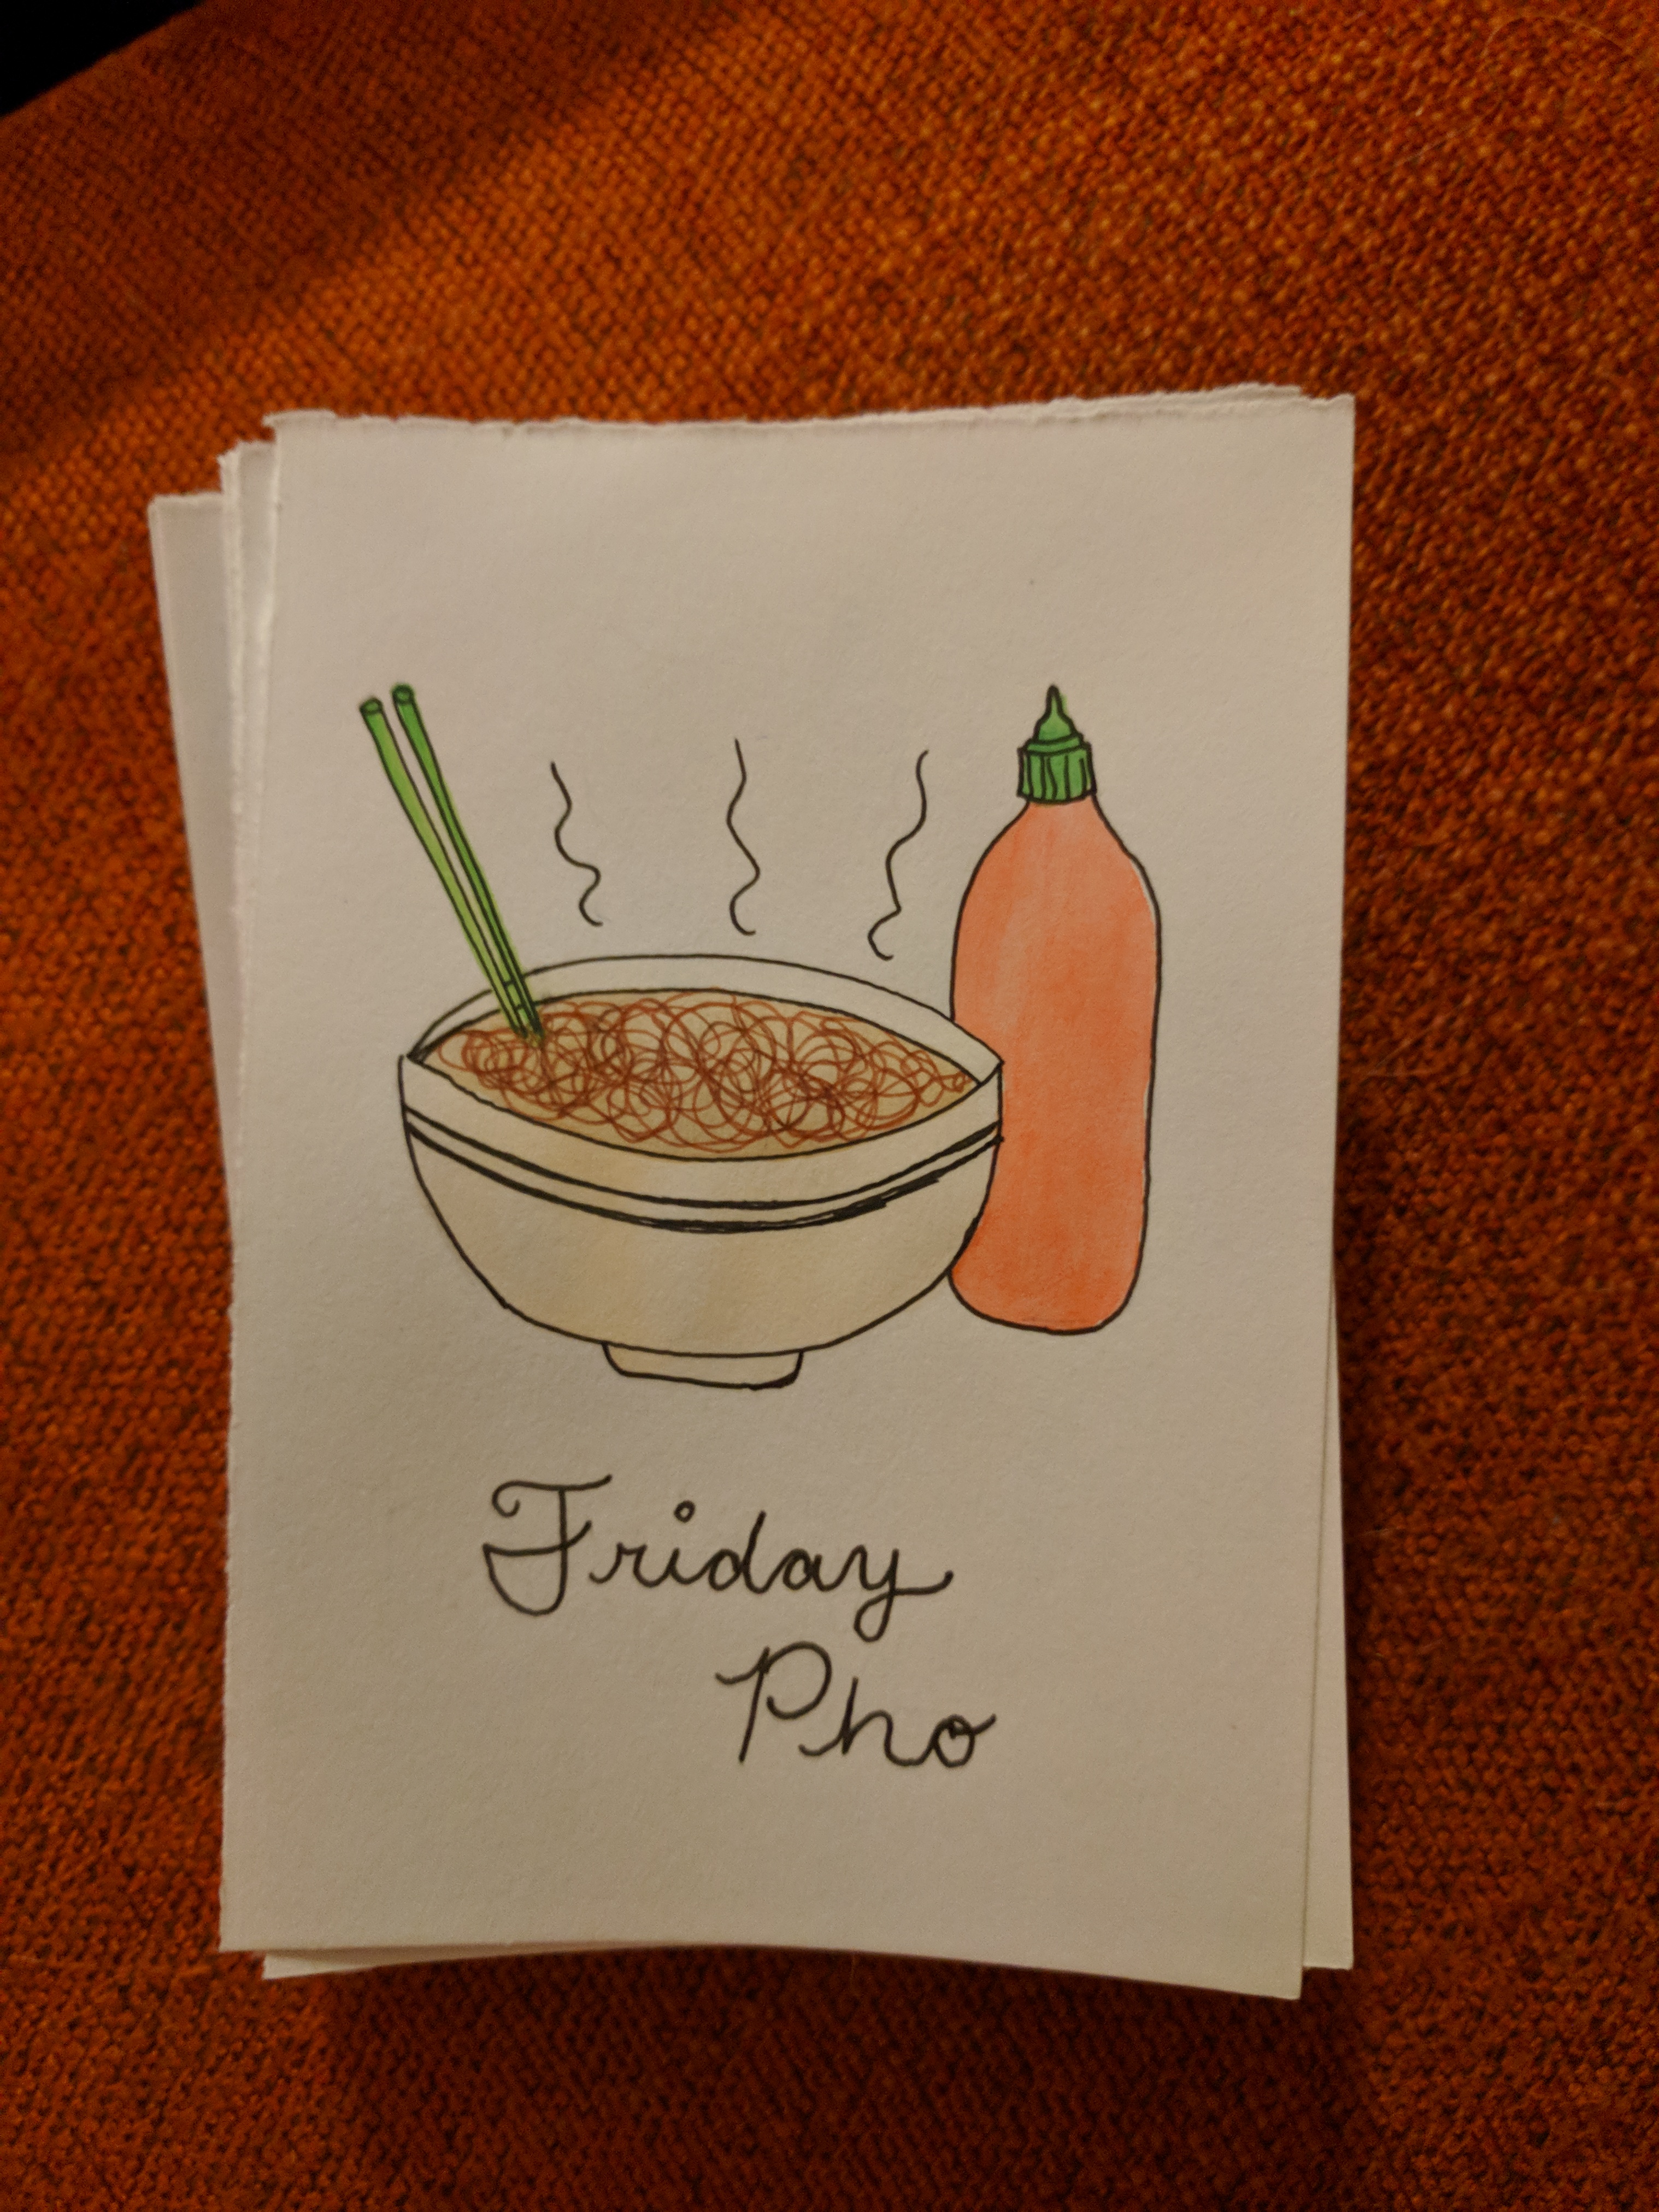 Friday
Pho